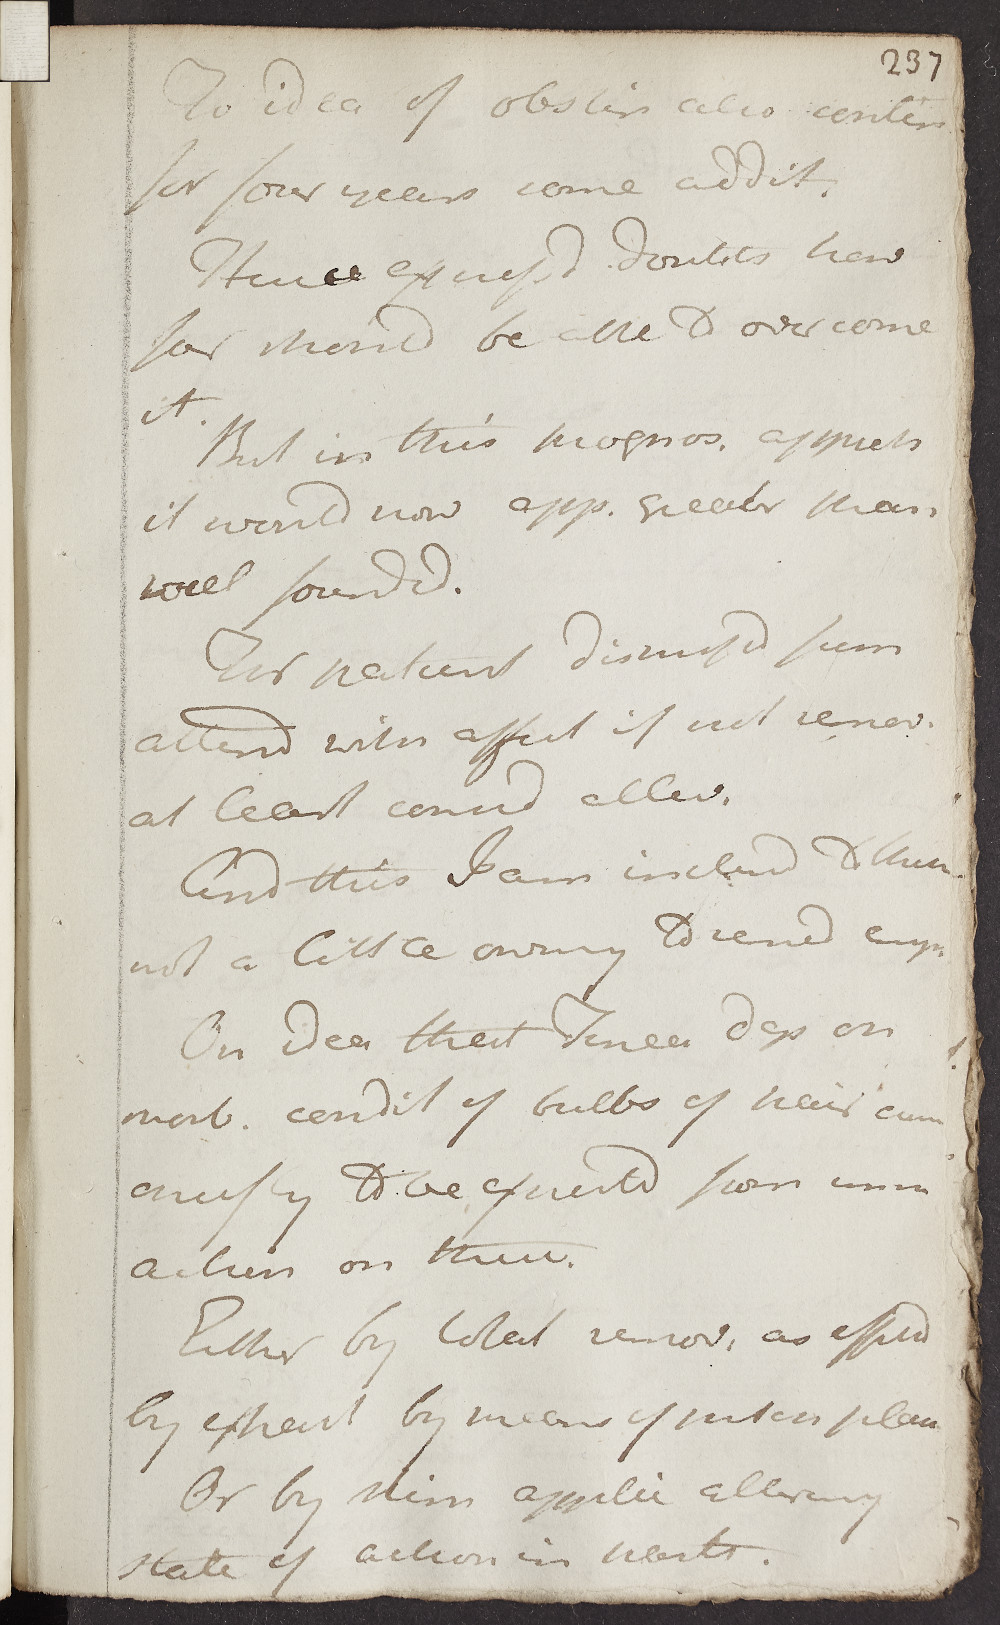 237
To idea of obstin also contin
for four years some addit.
Hence express'd doubts how
far should be able to overcome
it.
But in this prognos. appreh
it would now app. greater than
well founded.
For patient dismiss'd from
attend with effect if not remov.
at least consid allev.
And this I am inclind to think
not a little owing to remed emp.
On idea that Tinea dep on
morb. condit of bulbs of hair cure
chiefly to be expected from
action on these.
Either by total remov. as effectd
by extract by means of pitch plan
Or by stim applic altering
state of action in parts.